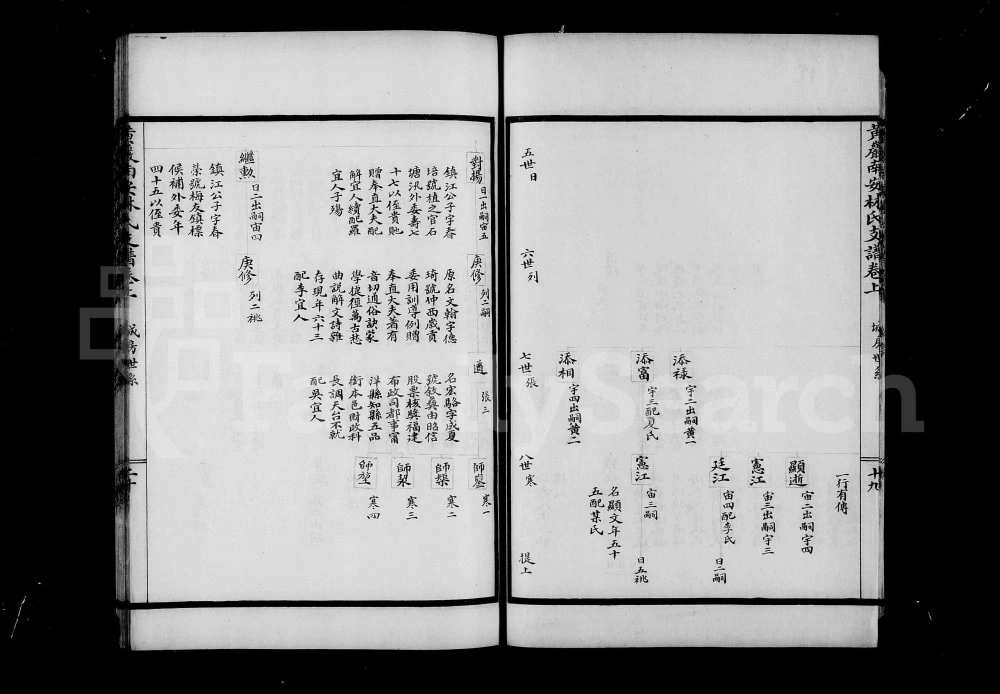 黃巖南安林氏支譜卷上
城房世系
廿九
一行有傳
顯逝 宙二出嗣宇四
憲江 宙三出嗣宇三
廷江 宙四配李氏 日二嗣
添祿 宇二出嗣黃一
添富 宇三配夏氏
憲江 宙三嗣 日五祧
名顯文年五十
五配葉氏
添相 宇四出嗣黃二
五世日
六世列
七世張
八世寒
提上
對揚 日一出嗣宙五
鎮江公子字春
培號植之官石
塘汛外委壽七
十七以侄貴貤
贈奉直大夫配
解宜人續配羅
宜人子殤
庚修 列二嗣
原名文翰字德
琦號仲西歲貢
委用訓導例贈
奉直大夫著有
音切通俗訣蒙
學捷徑萬古愁
曲說解文詩雜
存現年六十三
配李宜人
遒 張三
名宏駱字成夏
號敍彝由昭信
股票核獎福建
布政司都事甯
洋縣知縣五品
銜本邑財政科
長調天台不就
配吳宜人
師鋆 寒一
師槼 寒二
師棃 寒三
師埾 寒四
繼勲 日二出嗣宙四
鎮江公子字春
榮號梅友鎮標
候補外委年
四十五以侄貴
庚修 列二祧
黃巖南安林氏支譜卷上
城房世系
FamilySearch